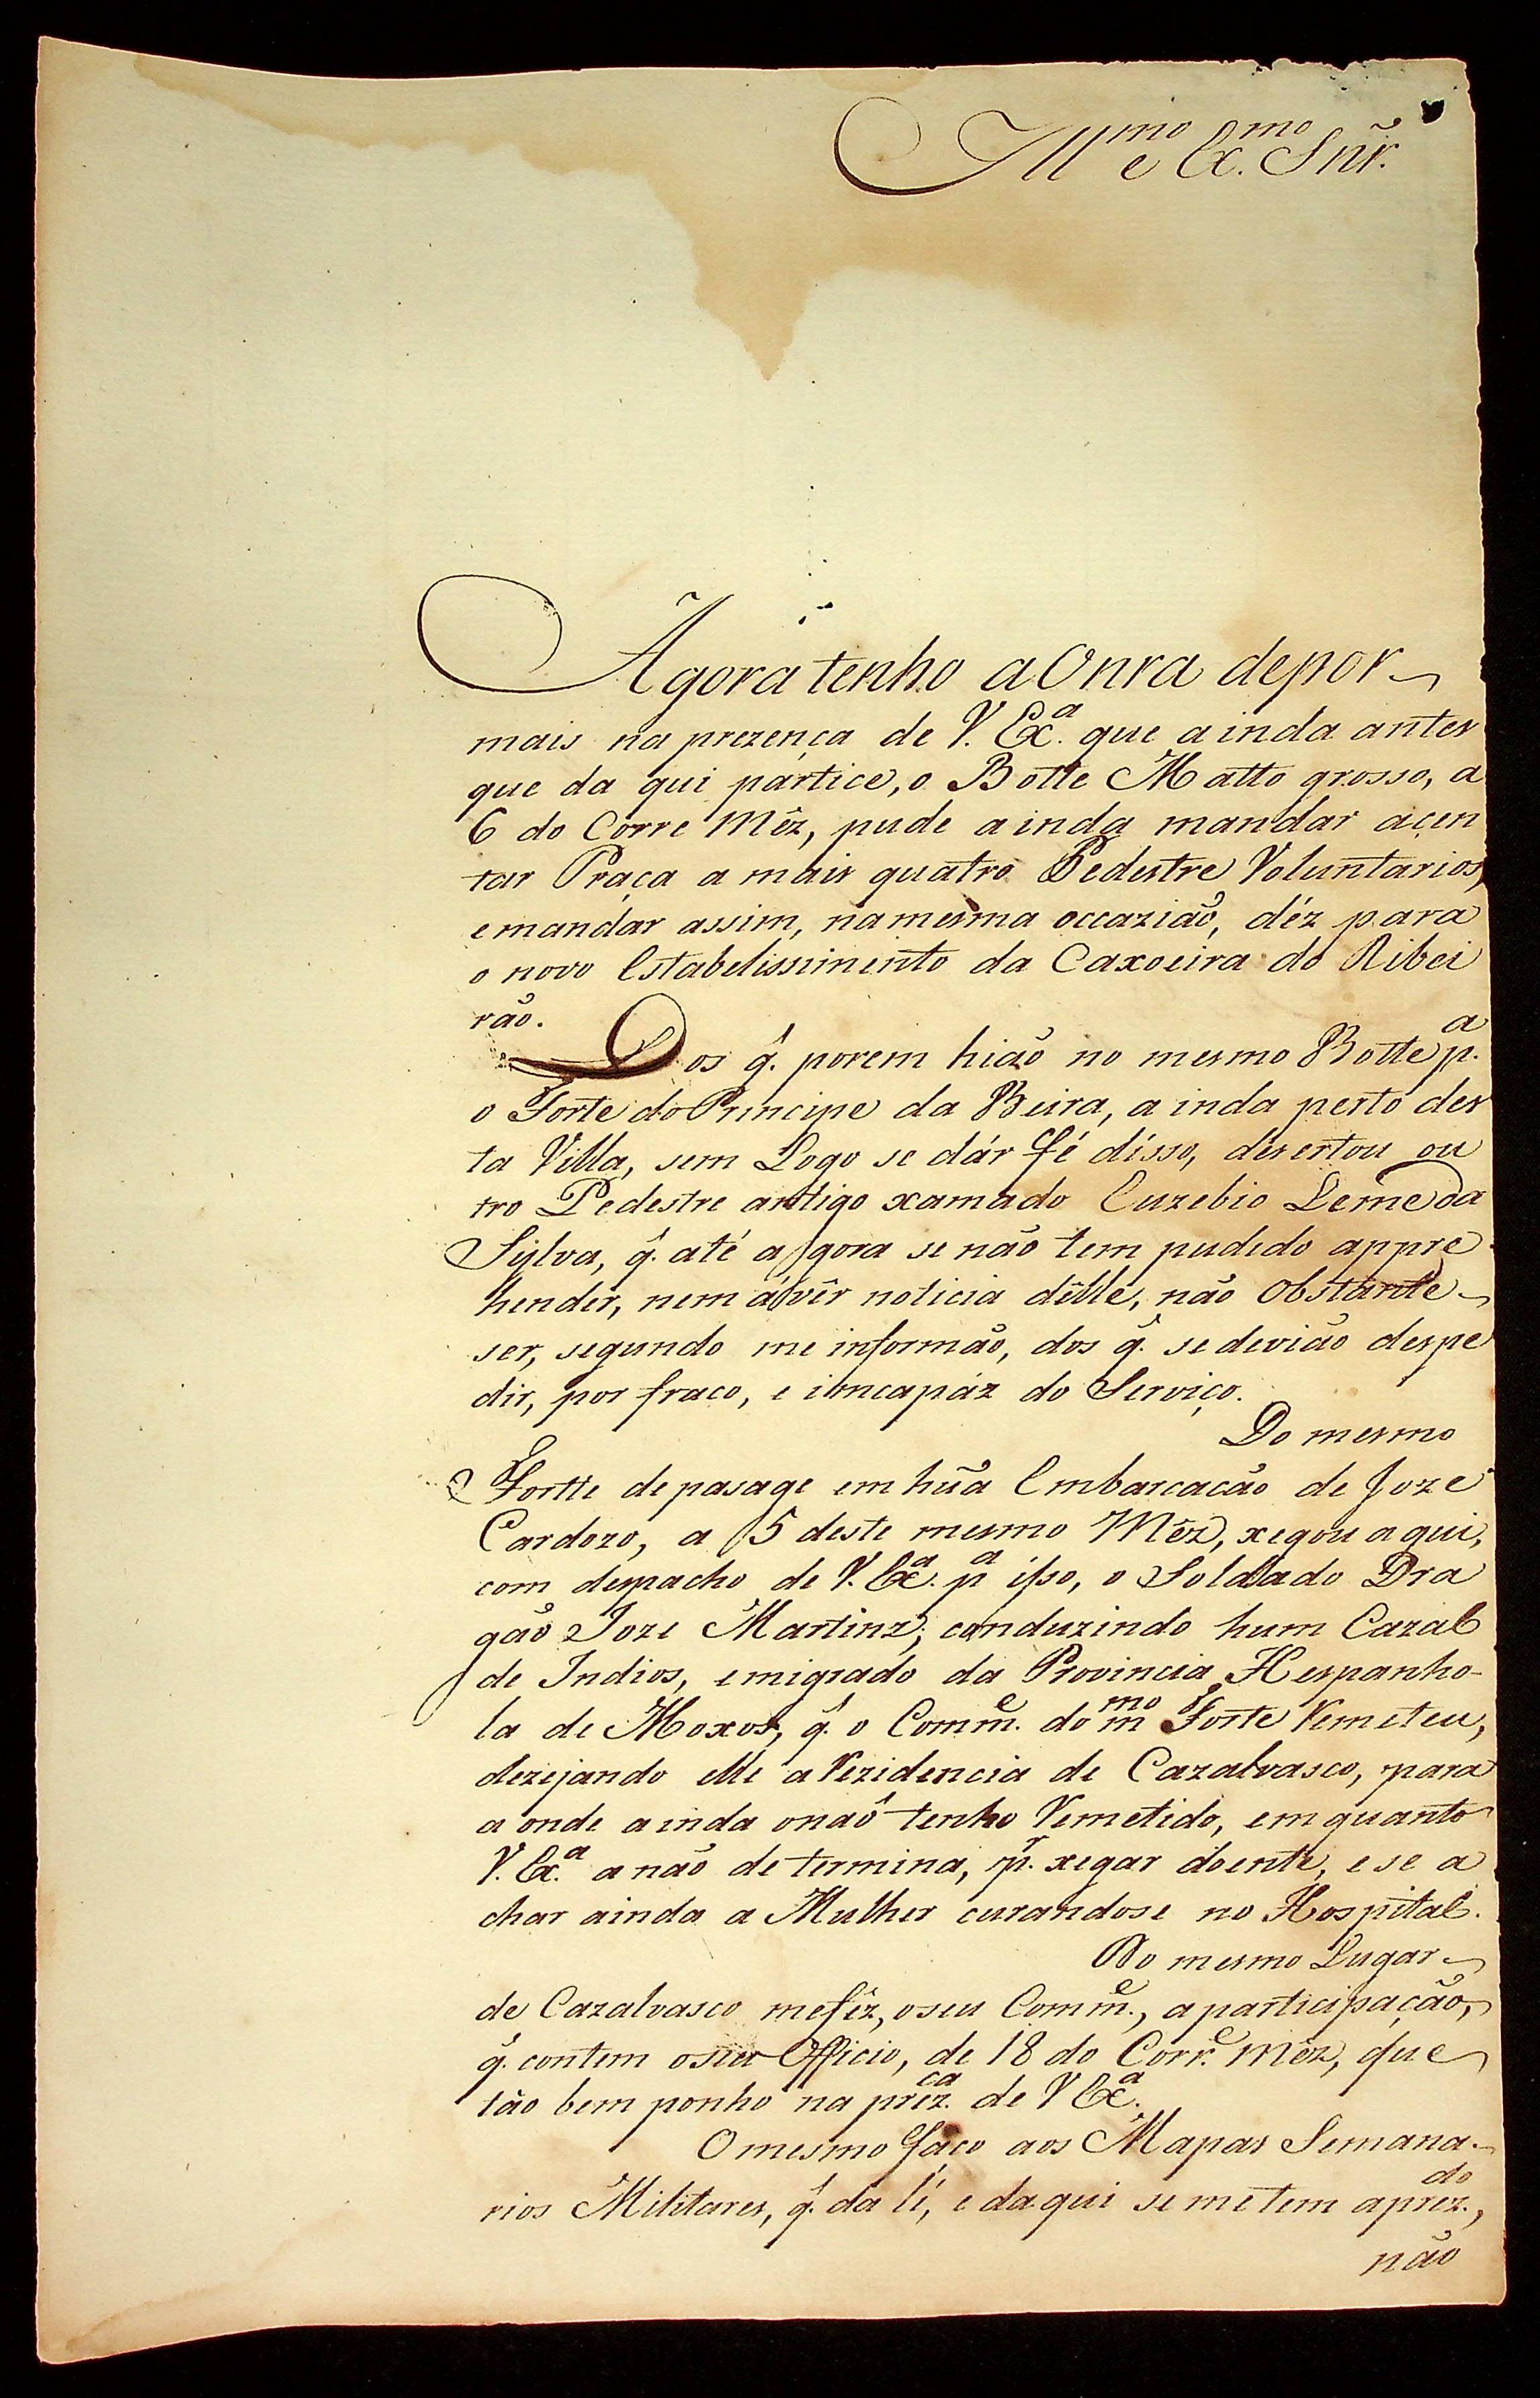 Ill<sup>mo</sup> e Ex.<sup>mo</sup> Snr̃.
Agora tenho a Onra de por
mais na prezença de V. Ex.ª que a inda antes
que da qui pártice, o Botte Matto grosso, a
6 do Corre Mêz, pude a inda mandar açen
tar Praça a mais quatro Pedestre Voluntarios,
e mandar assim, na mesma occazião, déz para
o novo Estabelissimento da Caxoeira do Ribei
rão.
Dos q̂. porem hião no mesmo Botte p.ª
o Forte do Principe da Beira, a inda perto des
ta Villa, sem Logo se dár fé dísso, desertou ou
tro Pedestre antigo xamado Euzebio Leme da
Sylva, q̂. até agora se não tem pudido appre
hender, nem ávêr noticia dêlle, não Obstante
ser, segundo me informão, dos q̂. se devião despe
dir, por fraco, e imcapáz do Serviço.
Do mesmo
Fortte de pasage em hũa Embarcacão de Joze
Cardozo, a 15 deste mesmo Mêz, xegou a qui,
com despacho de V. Ex.ª pª ißo, o Soldado Dra
gão Joze Martinz, conduzindo hum Cazal
de Indios, emigrado da Provincia Hespanho-
la de Moxos, q̂. o Comm̃.<sup>e</sup> do m<sup>mo</sup> Forte Remeteu,
dezejando elle a Rezidencia de Cazalvasco, para
a onde a inda onaõ tenho Remetido, em quanto
V. Ex.ª a não de termina, p<sup>r</sup>. xegar dóente, e se a
char ainda a Mulher curandose no Hospital.
Do mesmo Lugar
de Cazalvasco me fêz, o seu Comm̃.<sup>e</sup>, a participação,
q̂. contem o seu Officio, de 18 do Corr.<sup>e</sup> Mêz, que
tão bem ponho na prez.<sup>ca</sup> de V Ex.ª
O mesmo faço aos Mapas Semana-
rios Militares, q̂. da lí, e da qui se me tem aprez.<sup>do</sup>,
não